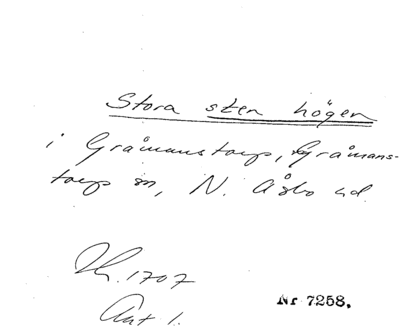 Stora sten högen
i Gråmanstorp, Gråmans-
torp sn, N. Åsbo hd.
1707
Ant 1.
Nr 7258.